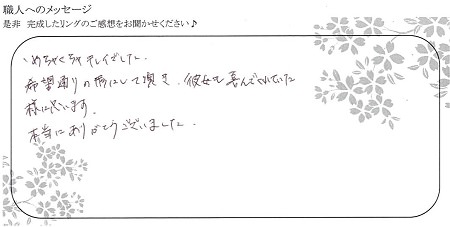 職人へのメッセージ
是非 完成したリングのご感想をお聞かせください♪
めちゃくちゃキレイでした。
希望通りの幅にして頂き、彼女も喜んでくれていた
様に思います。
本当にありがとうございました。